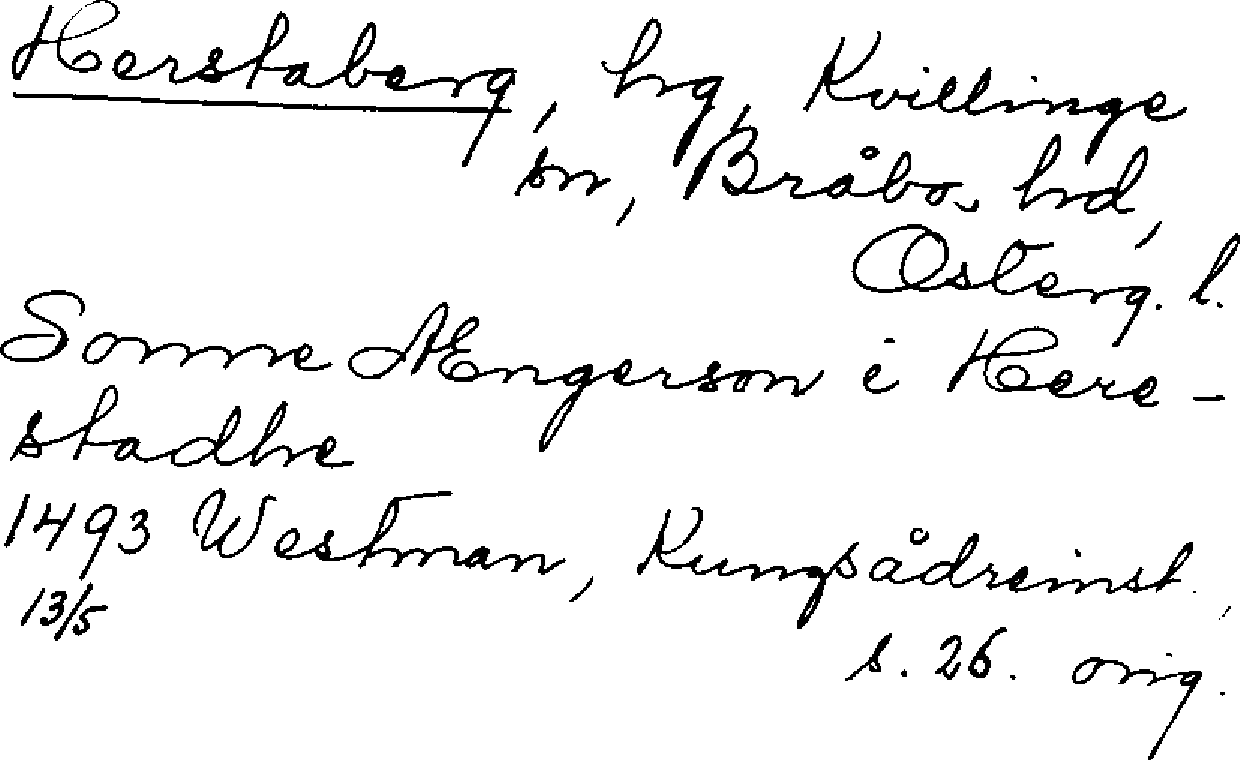 Herstaberg, hg, Kvillinge
sn, Bråbo hd,
Österg. l.
Sonne Ængerson i Here-
stadhe
1493 Westman, Kungsådreinst.,
13/5
s. 26. orig.